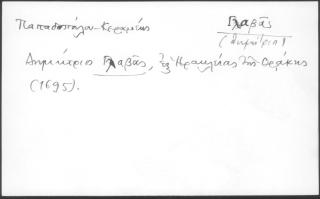 Παπαδοπούλου-Κεραμεύς
Γλαβᾶς
(Δημήτριος)
Δημήτριος Γλαβᾶς, ἐξ Ἡρακλείας τῆς Θράκης
(1695).